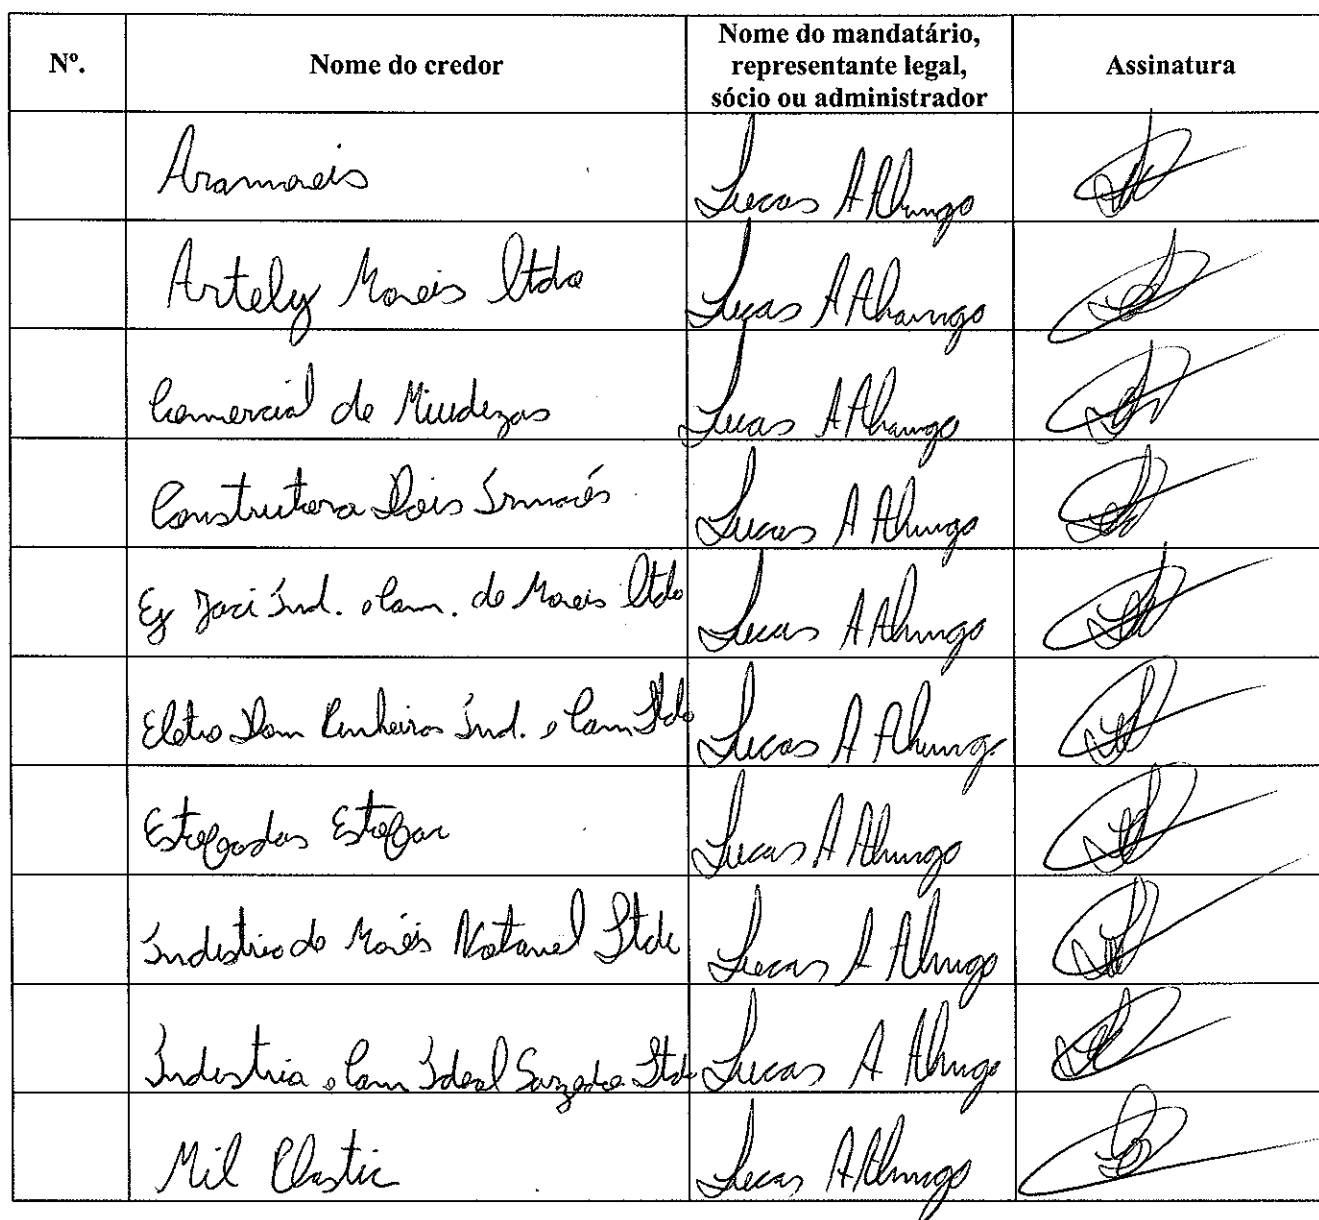 Nº.
Nome do credor
Nome do mandatário,
representante legal,
sócio ou administrador
Assinatura
Aramoveis
Lucas A
Artely Moveis ltda
Lucas A
Comercial de Miudezas
Lucas A
Construtora Dois Irmãos
Lucas A
Ind. e Com. de Moveis ltda
Lucas A
Eletro Dom Pinheiros Ind. e Com Ltda
Lucas A
Estofados Estofar
Lucas A
Industria de Moveis Notavel Ltda
Lucas A
Industria e Com Ideal Sarzedo Ltda
Lucas A
Mil Plastic
Lucas A